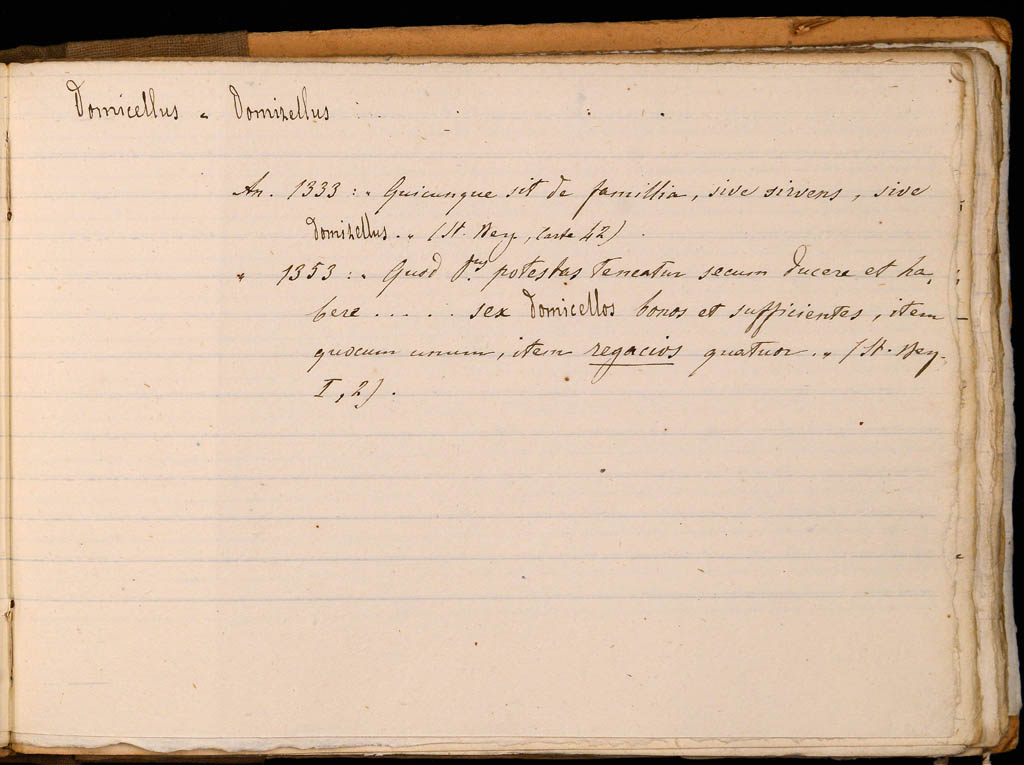 Domicellus „ Domizellus
An. 1333 : „ Quicunque sit de famillia, sive sirvens, sive
domizellus. „ (St. Reg., Carte 42)
„ 1353 : „ Quod D.nus potestas teneatur secum ducere et ha,
bere ..... sex Domicellos bonos et sufficientes, item
quocum unum, item regacios quatuor. „ (St. Reg.
I, 2).